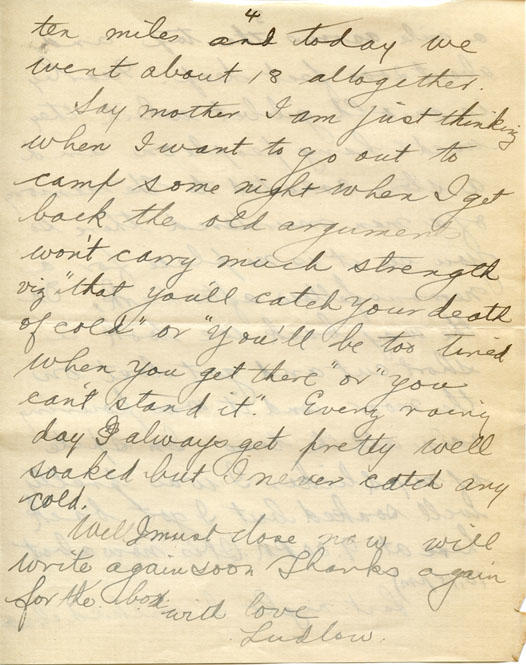 4
ten miles and today we
went about 18 altogether.
Say mother I am just thinking
when I want to go out to
camp some night when I get
back the old argument
won't carry much strength
viz "that you'll catch your death
of cold" or "you'll be too tired
when you get there" or "you
can't stand it". Every rainy
day I always get pretty well
soaked but I never catch any
cold.
Well I must close now will
write again soon Thanks again
for the box.
with love
Ludlow.